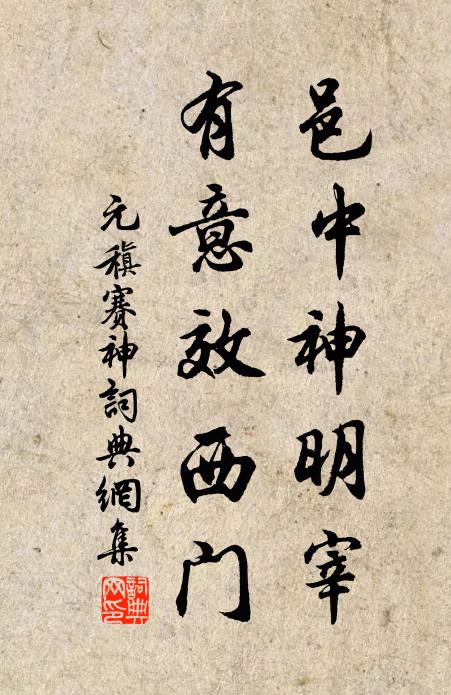 邑中神明宰
有意效西门
元稹赛神詞典網集
詞典网印